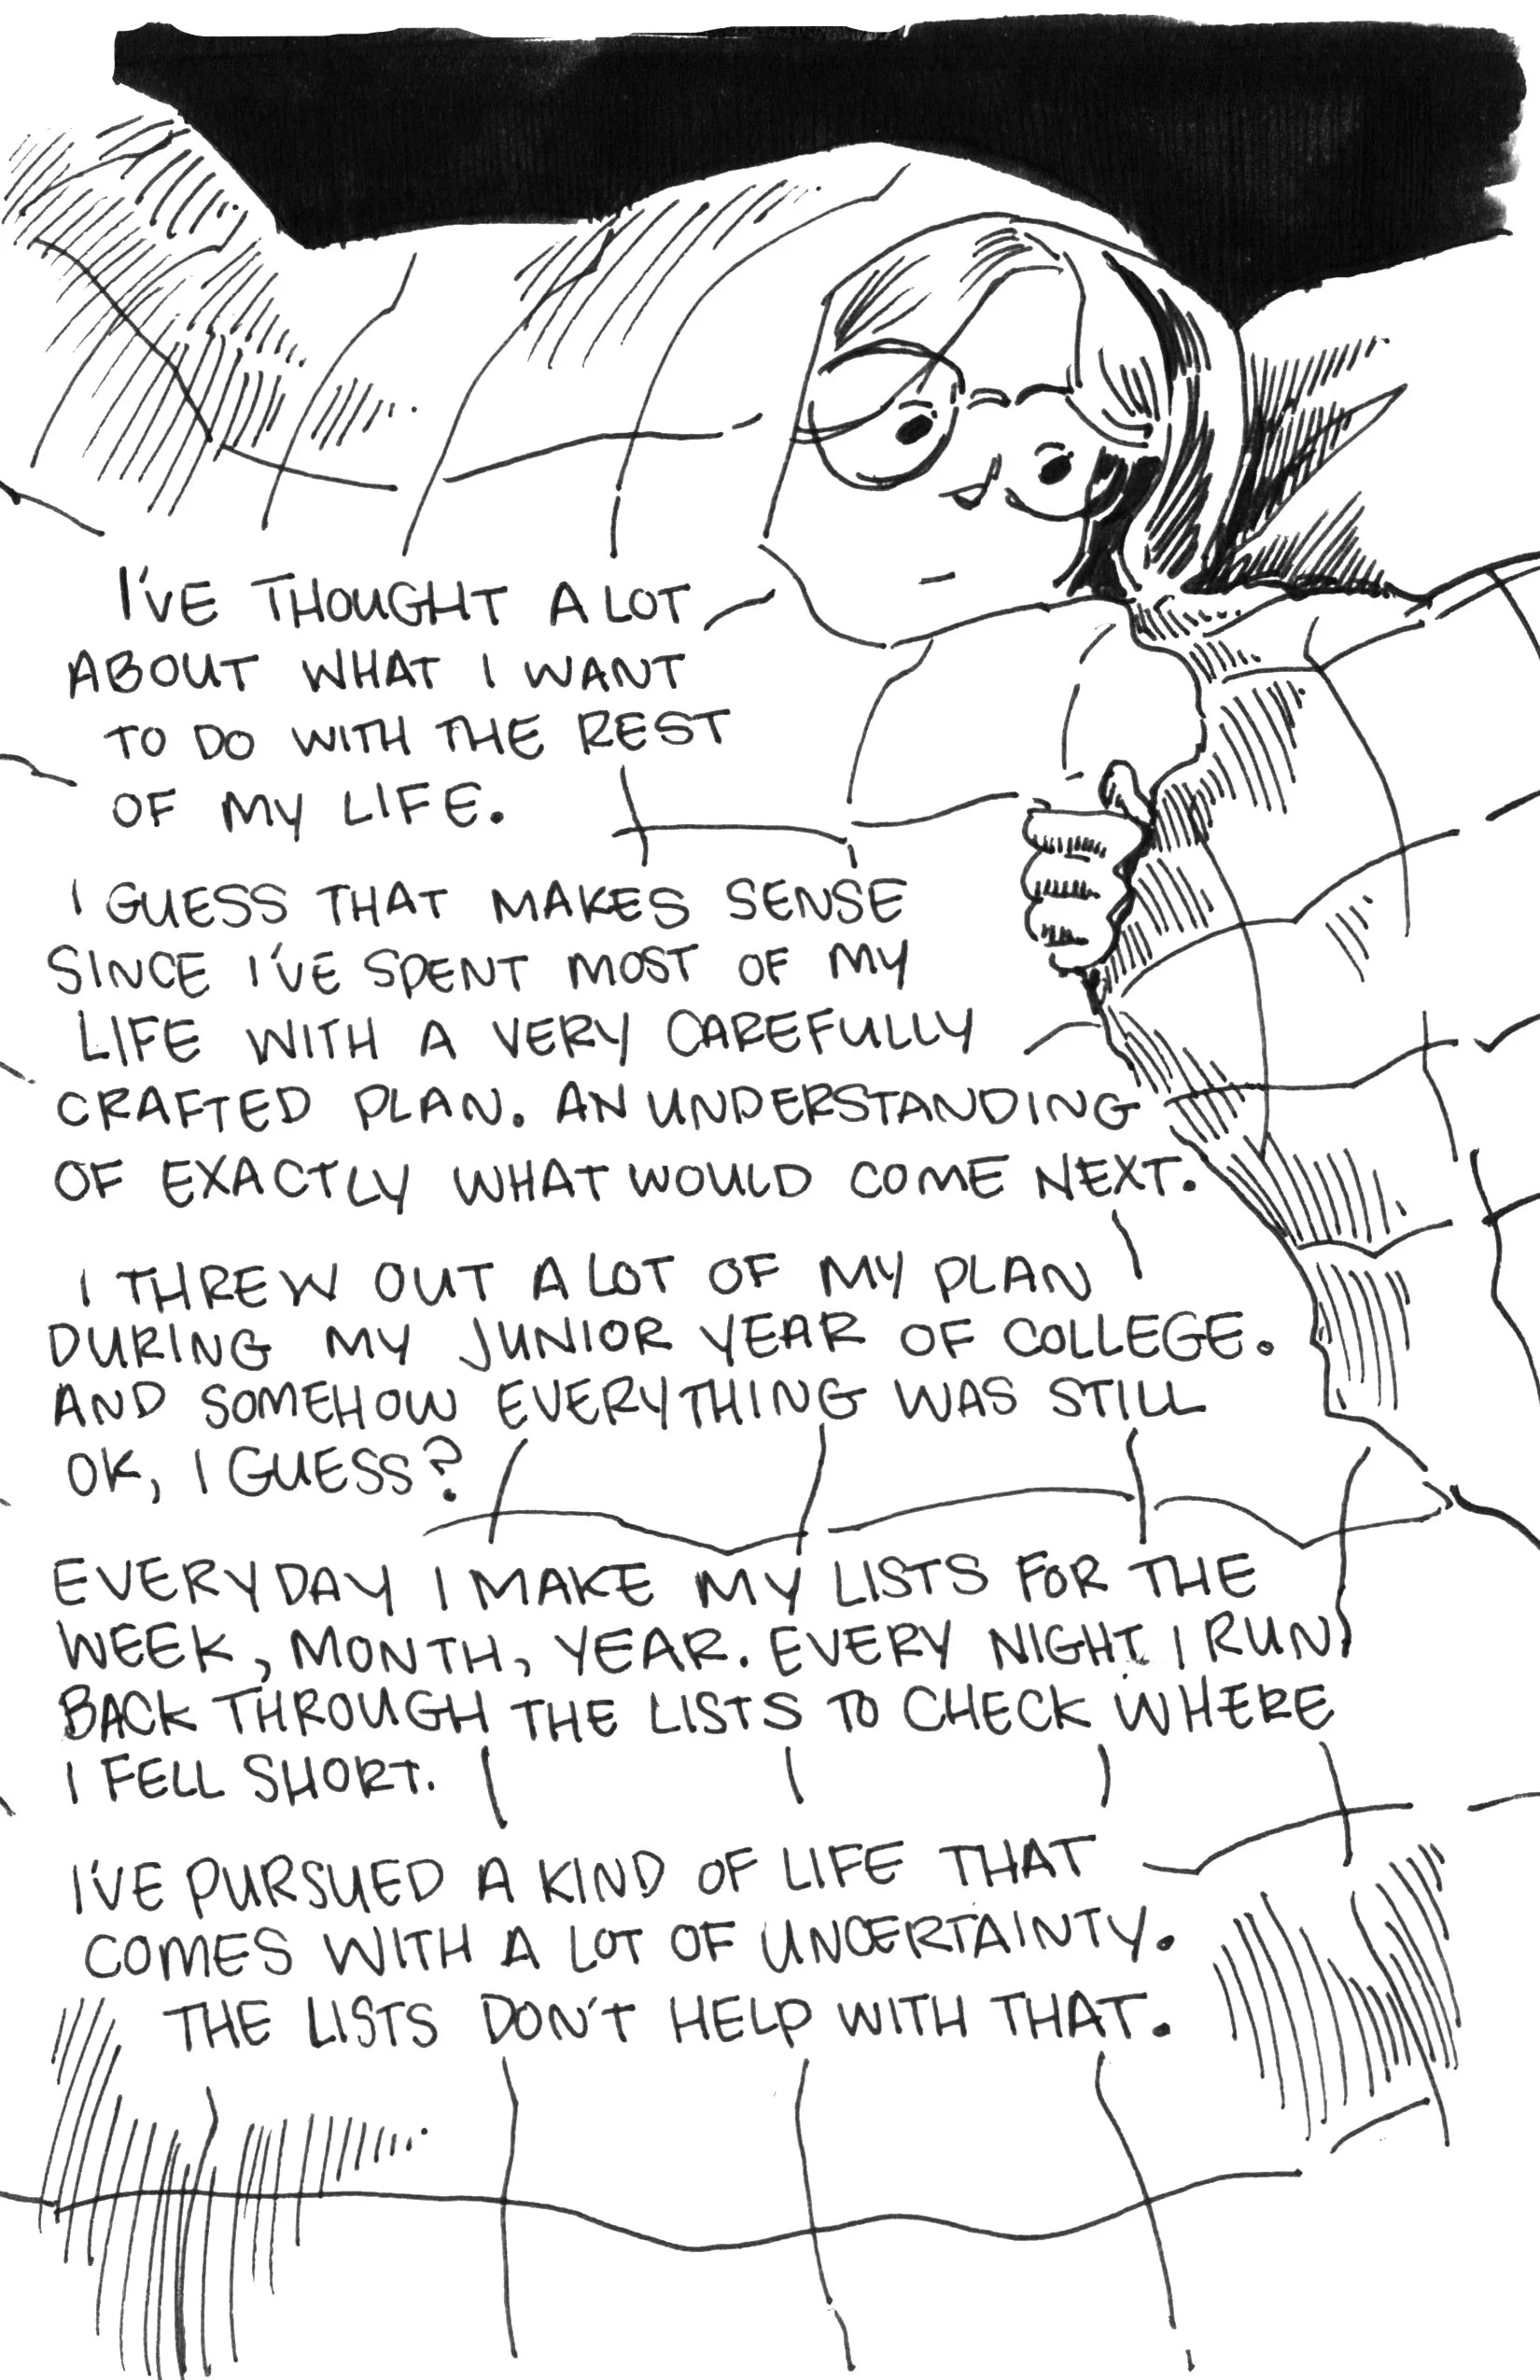 I'VE THOUGHT A LOT
ABOUT WHAT I WANT
TO DO WITH THE REST
OF MY LIFE.
I GUESS THAT MAKES SENSE
SINCE I'VE SPENT MOST OF MY
LIFE WITH A VERY CAREFULLY
CRAFTED PLAN. AN UNDERSTANDING
OF EXACTLY WHAT WOULD COME NEXT.
I THREW OUT A LOT OF MY PLAN
DURING MY JUNIOR YEAR OF COLLEGE.
AND SOMEHOW EVERYTHING WAS STILL
OK, I GUESS?
EVERYDAY I MAKE MY LISTS FOR THE
WEEK, MONTH, YEAR. EVERY NIGHT I RUN
BACK THROUGH THE LISTS TO CHECK WHERE
I FELL SHORT.
I'VE PURSUED A KIND OF LIFE THAT
COMES WITH A LOT OF UNCERTAINTY.
THE LISTS DON'T HELP WITH THAT.